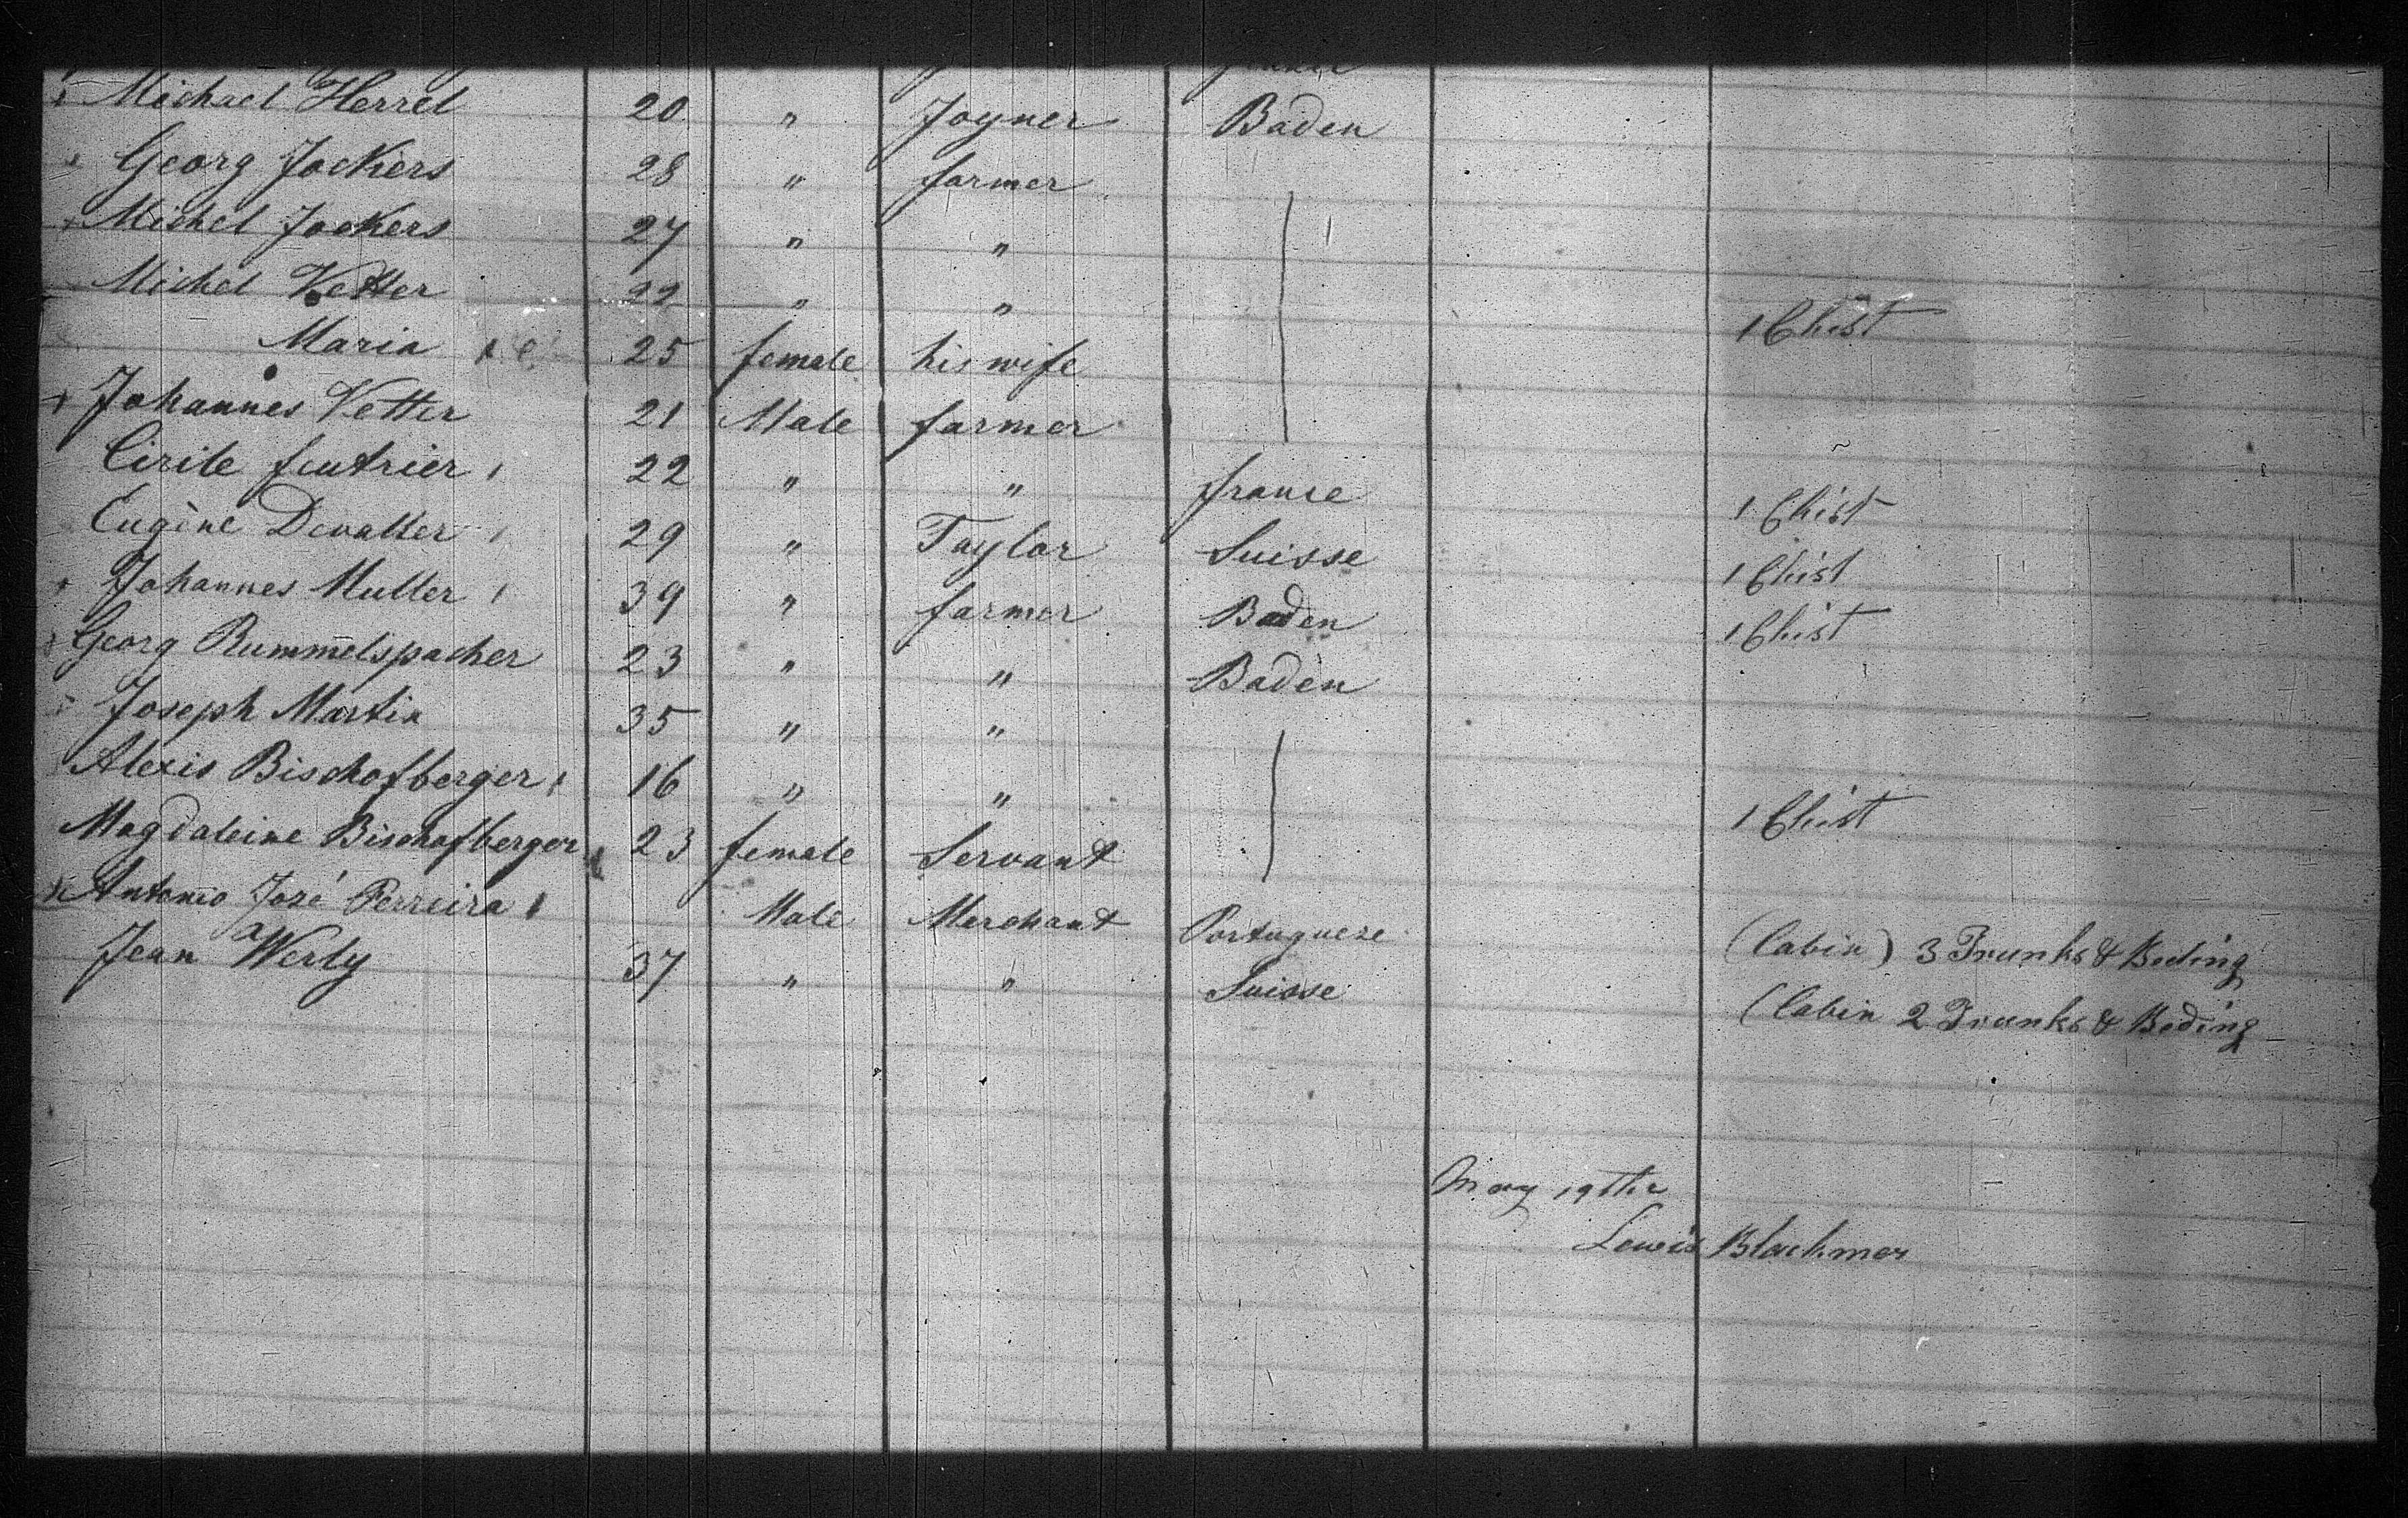 Michael Herrel 20 " Joyner Baden
Georg Jockers 28 " farmer
Michel Jockers 27 " "
Michel Vetter 22 " " 1 Chist
Maria 25 female his wife
Johannes Vetter 21 Male farmer
Cirile feutrier 22 " " france 1 Chist
Eugène Devatter 29 " Taylor Suisse 1 Chist
Johannes Muller 39 " farmer Baden 1 Chist
Georg Rummelspacher 23 " " Baden
Joseph Martin 35 " "
Alexis Bischofberger 16 " " 1 Chist
Magdaleine Bischofberger 23 female Servant
Antonio José Perreira Male Merchant Portuguese (Cabin) 3 Trunks & Beding
Jean Werly 37 " " Suisse (Cabin 2 Trunks & Beding
May 19th
Lewis Blackmer